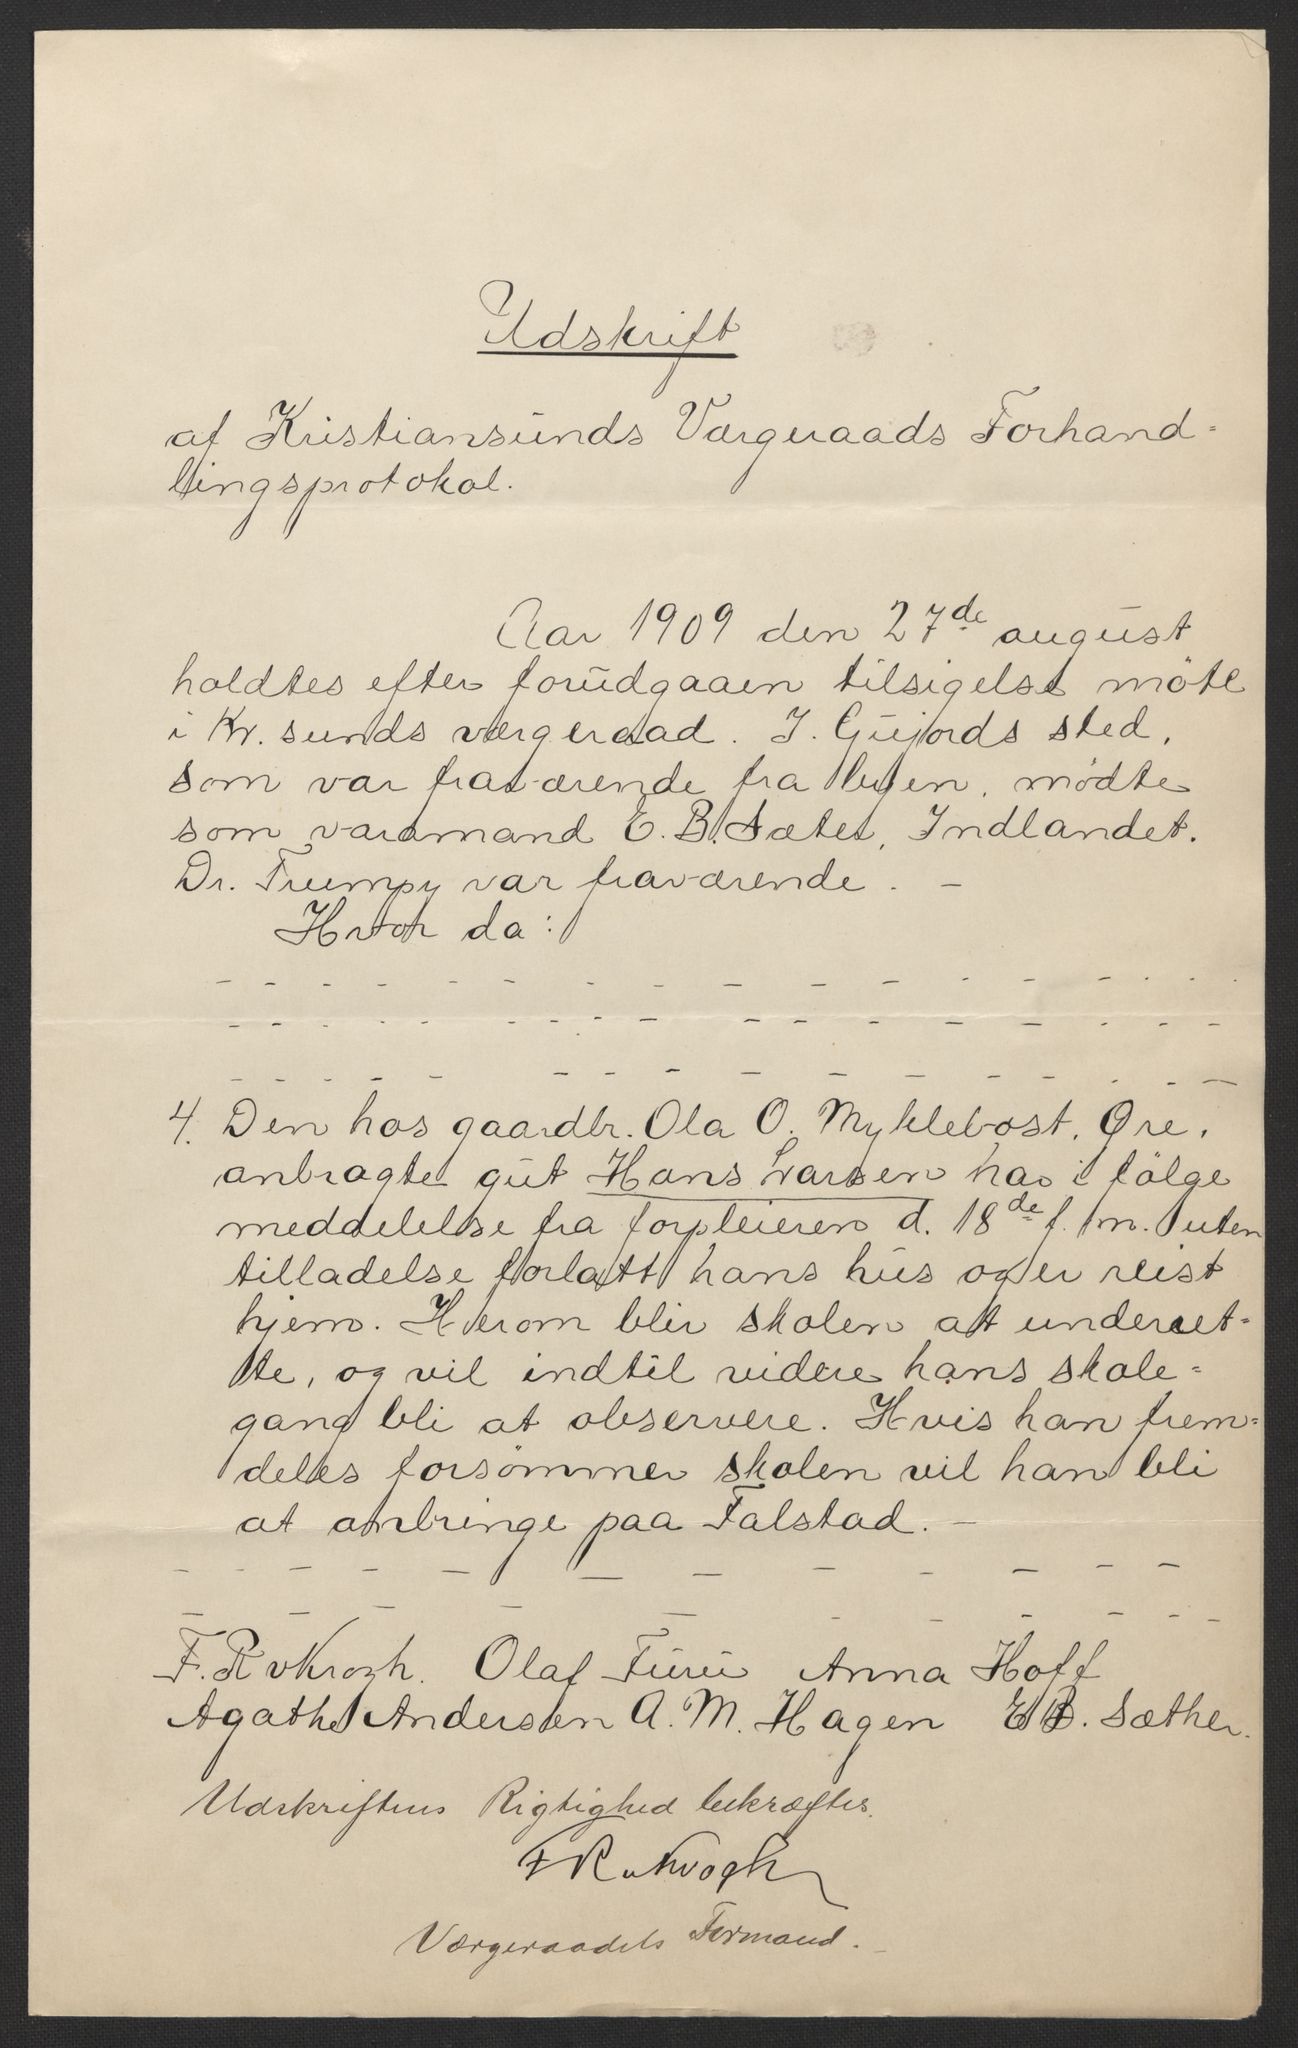 Udskrift
af Kristiansunds Værgeraads Forhand-
lingsprotokol.
Aar 1909 den 27de august
holdtes efter forudgaaen tilsigelse möte
i Kr. sunds værgeraad. I. Gujords sted,
som var fraværende fra byen, mødte
som varamand E. B. Sæter, Indlandet.
Dr. Trumpy var fraværende. -
Hvor da:
4. Den hos gaardbr. Ola O. Myklebost, Øre,
anbragte gut Hans Larsen har i følge
meddelelse fra forpleieren d. 18de f. m. uten
tilladelse forlatt hans hus og er reist
hjem. Herom blir skolen at underret-
te, og vil indtil videre hans skole-
gang bli at observere. Hvis han frem-
deles forsömmer skolen vil han bli
at anbringe paa Falstad. -
F. R. v Krogh. Olaf Furu Anna Hoff
Agathe Andersen A. M. Hagen E B. Sæther.
Udskriftens Rigtighed bekræftes.
F R v Krogh
Værgeraadets Formand. -